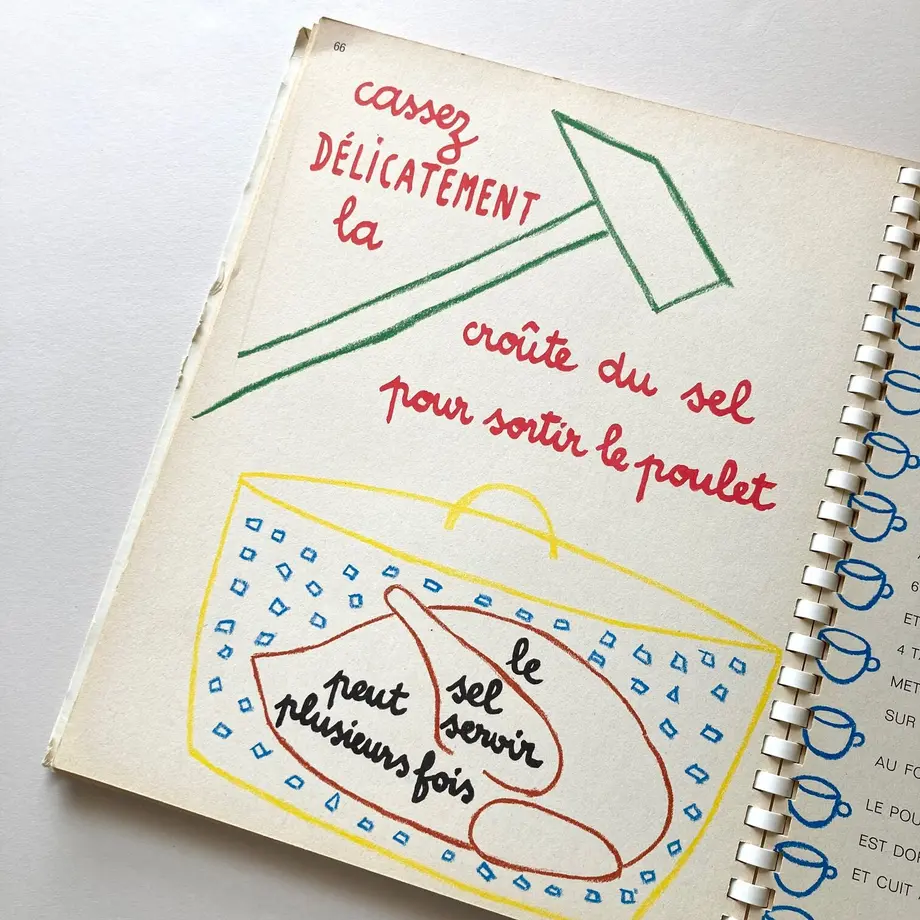 66
cassez
DÉLICATEMENT
la
croûte du sel
pour sortir le poulet
le
sel
peut servir
plusieurs fois
6
ET
MET
SUR
AU FO
LE POU
EST DO
ET CUIT